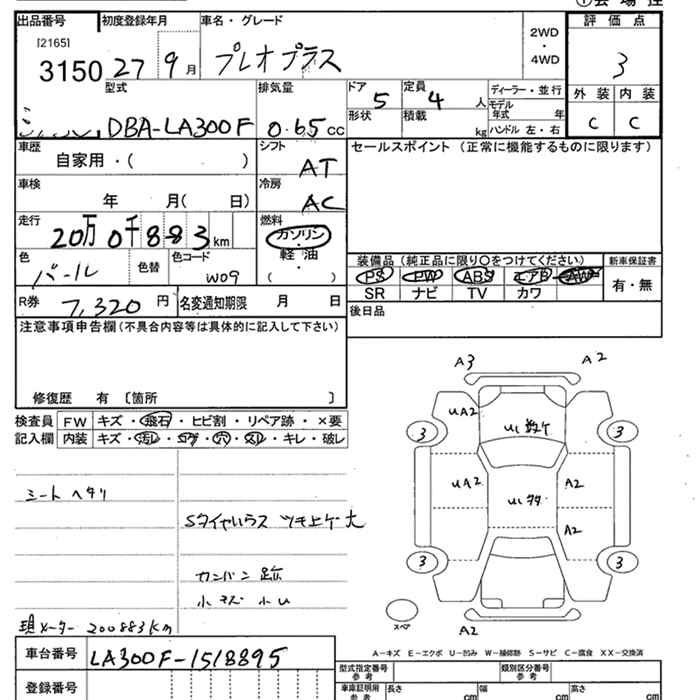 出品番号 初度登録年月 車名・グレード 2WD・4WD 評価点
[2165]
3150 27 9月 プレオプラス 3
型式 排気量 ドア 定員 ディーラー・並行 外装 内装
DBA-LA300F 0.65cc 5 4人 モデル年式 年 C C
形状 積載 kg ハンドル 左・右
車歴 シフト セールスポイント (正常に機能するものに限ります)
自家用・( ) AT
車検 冷房
年 月( 日) AC
走行 燃料
20万0千883km ガソリン
軽油
( ・ )
色 色替 色コード 装備品 (純正品に限り○をつけてください) 新車保証書
パール W09 PS PW ABS エアB AW 有・無
SR ナビ TV カワ
R券 7,320円 名変通知期限 月 日 後日品
注意事項申告欄(不具合内容等は具体的に記入して下さい)
修復歴 有 〔箇所 〕
検査員 FW キズ・飛石・ヒビ割・リペア跡・×要
記入欄 内装 キズ・汚レ・コゲ・穴・スレ・キレ・破レ
シートヘタリ
Sタイヤハウス ツキ上ゲ大
カンバン跡
小キズ小U
現メーター 200883km
A3 A2
UA2 3 3
UA2 A2
A2
3 3
スペア A2
A-キズ E-エクボ U-凹み W-補修跡 S-サビ C-腐食 XX-交換済
車台番号 LA300F-1518895
登録番号
型式指定番号 参考 類別区分番号 参考
車庫証明用 参考 長さ cm 幅 cm 高さ cm